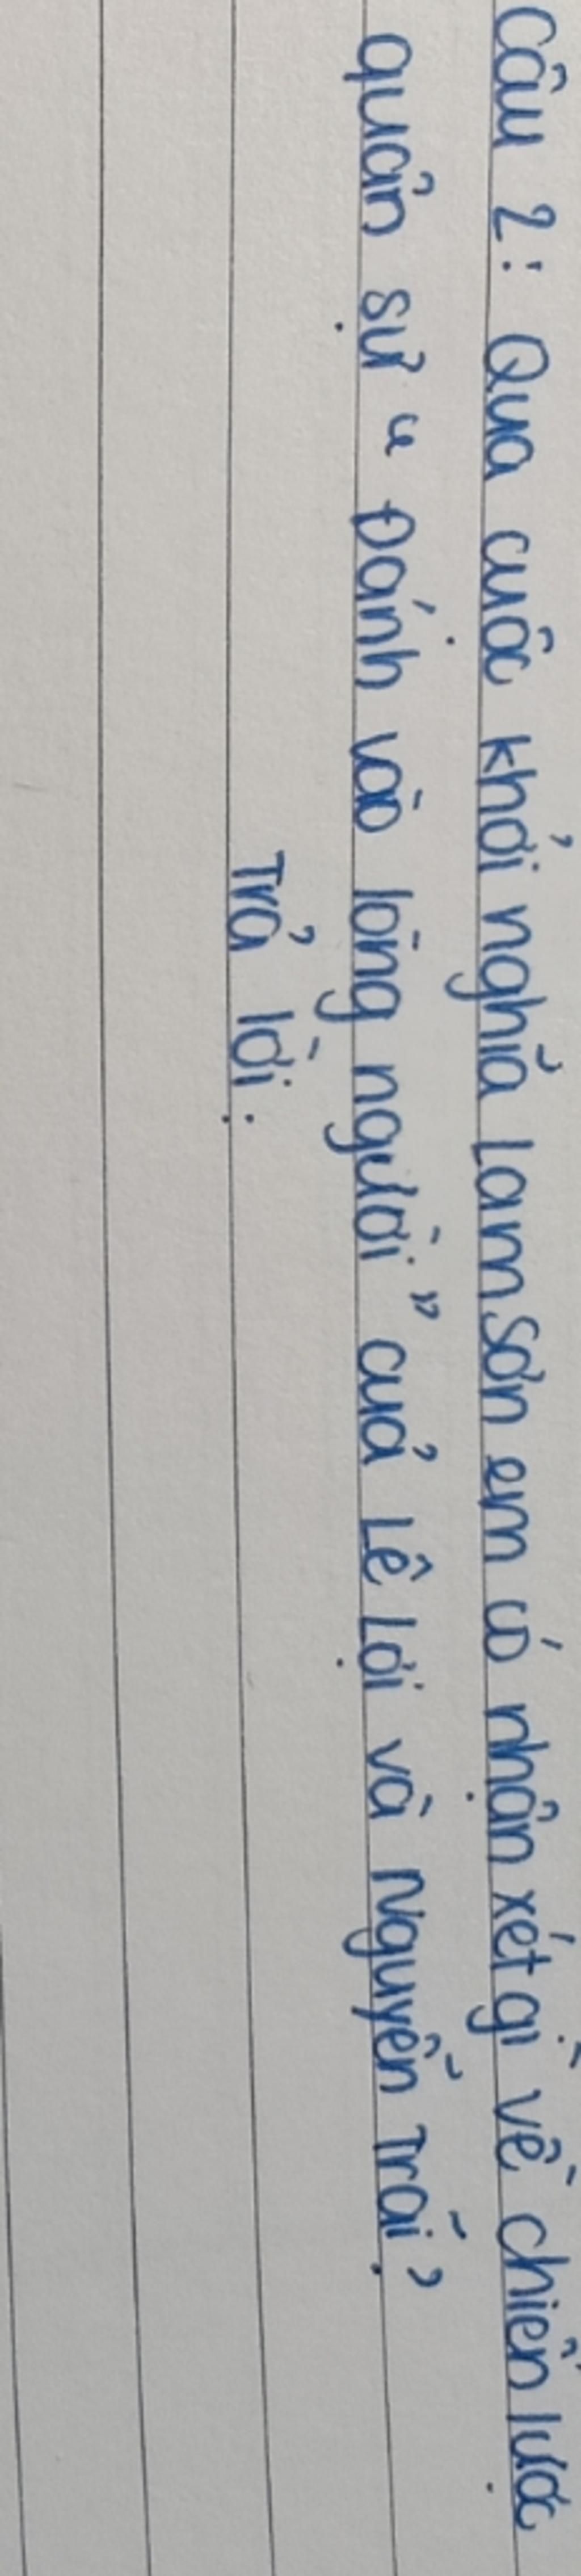 Câu 2: Qua cuộc khởi nghĩa Lam Sơn em có nhận xét gì về chiến lược
quân sự " Đánh vào lòng người " của Lê Lợi và Nguyễn Trãi?
Trả lời: